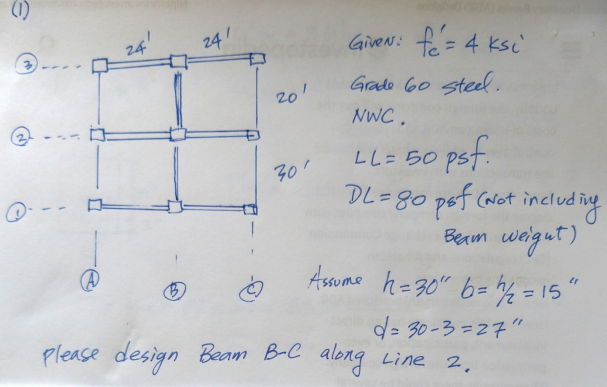 (1)
24' 24'
3
Given: fc' = 4 ksi
20'
Grade 60 steel.
NWC.
2
30'
LL = 50 psf.
DL = 80 psf (Not including
Beam weight)
1
A B C
Assume h = 30" b = h/2 = 15"
d = 30 - 3 = 27"
please design Beam B-C along Line 2.